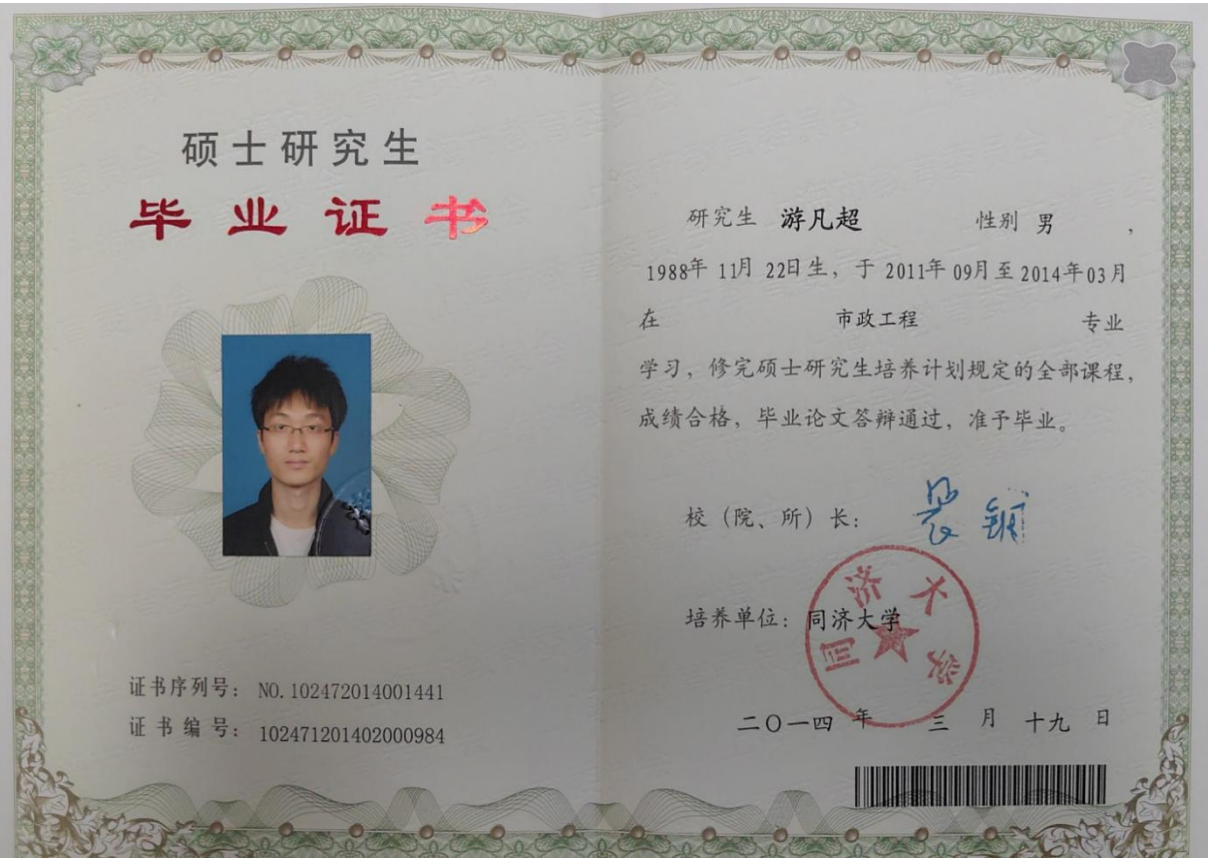 硕士研究生
毕业证书
证书序列号: NO.102472014001441
证书编号: 102471201402000984
研究生 游凡超 性别 男,
1988年 11月 22日生, 于 2011年 09月至 2014年 03月
在 市政工程 专业
学习, 修完硕士研究生培养计划规定的全部课程,
成绩合格, 毕业论文答辩通过, 准予毕业。
校（院、所）长:
培养单位: 同济大学
同济大学
二〇一四 年 三 月 十九 日